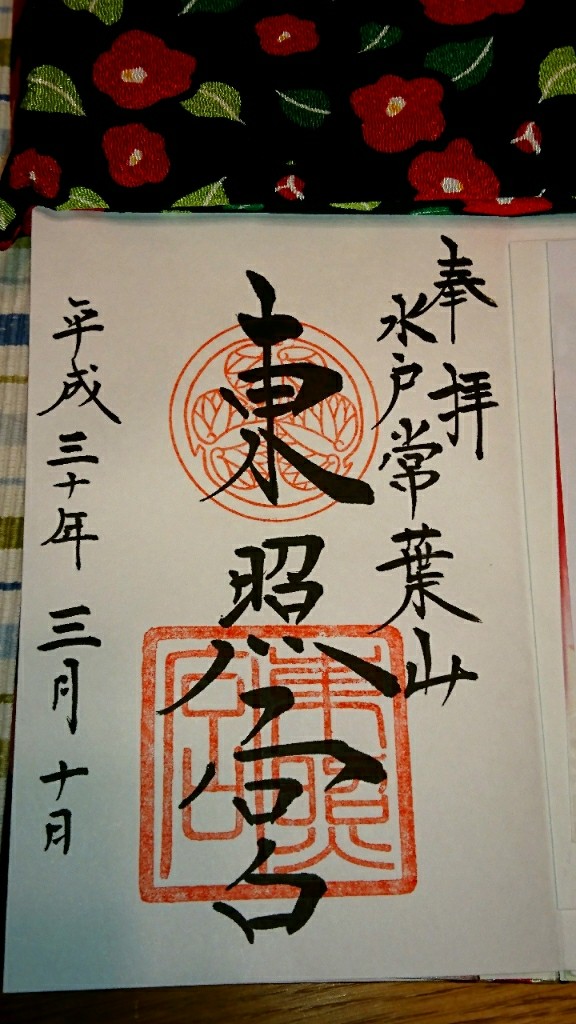 奉拝
水戸常葉山
東照宮
平成三十年三月十日